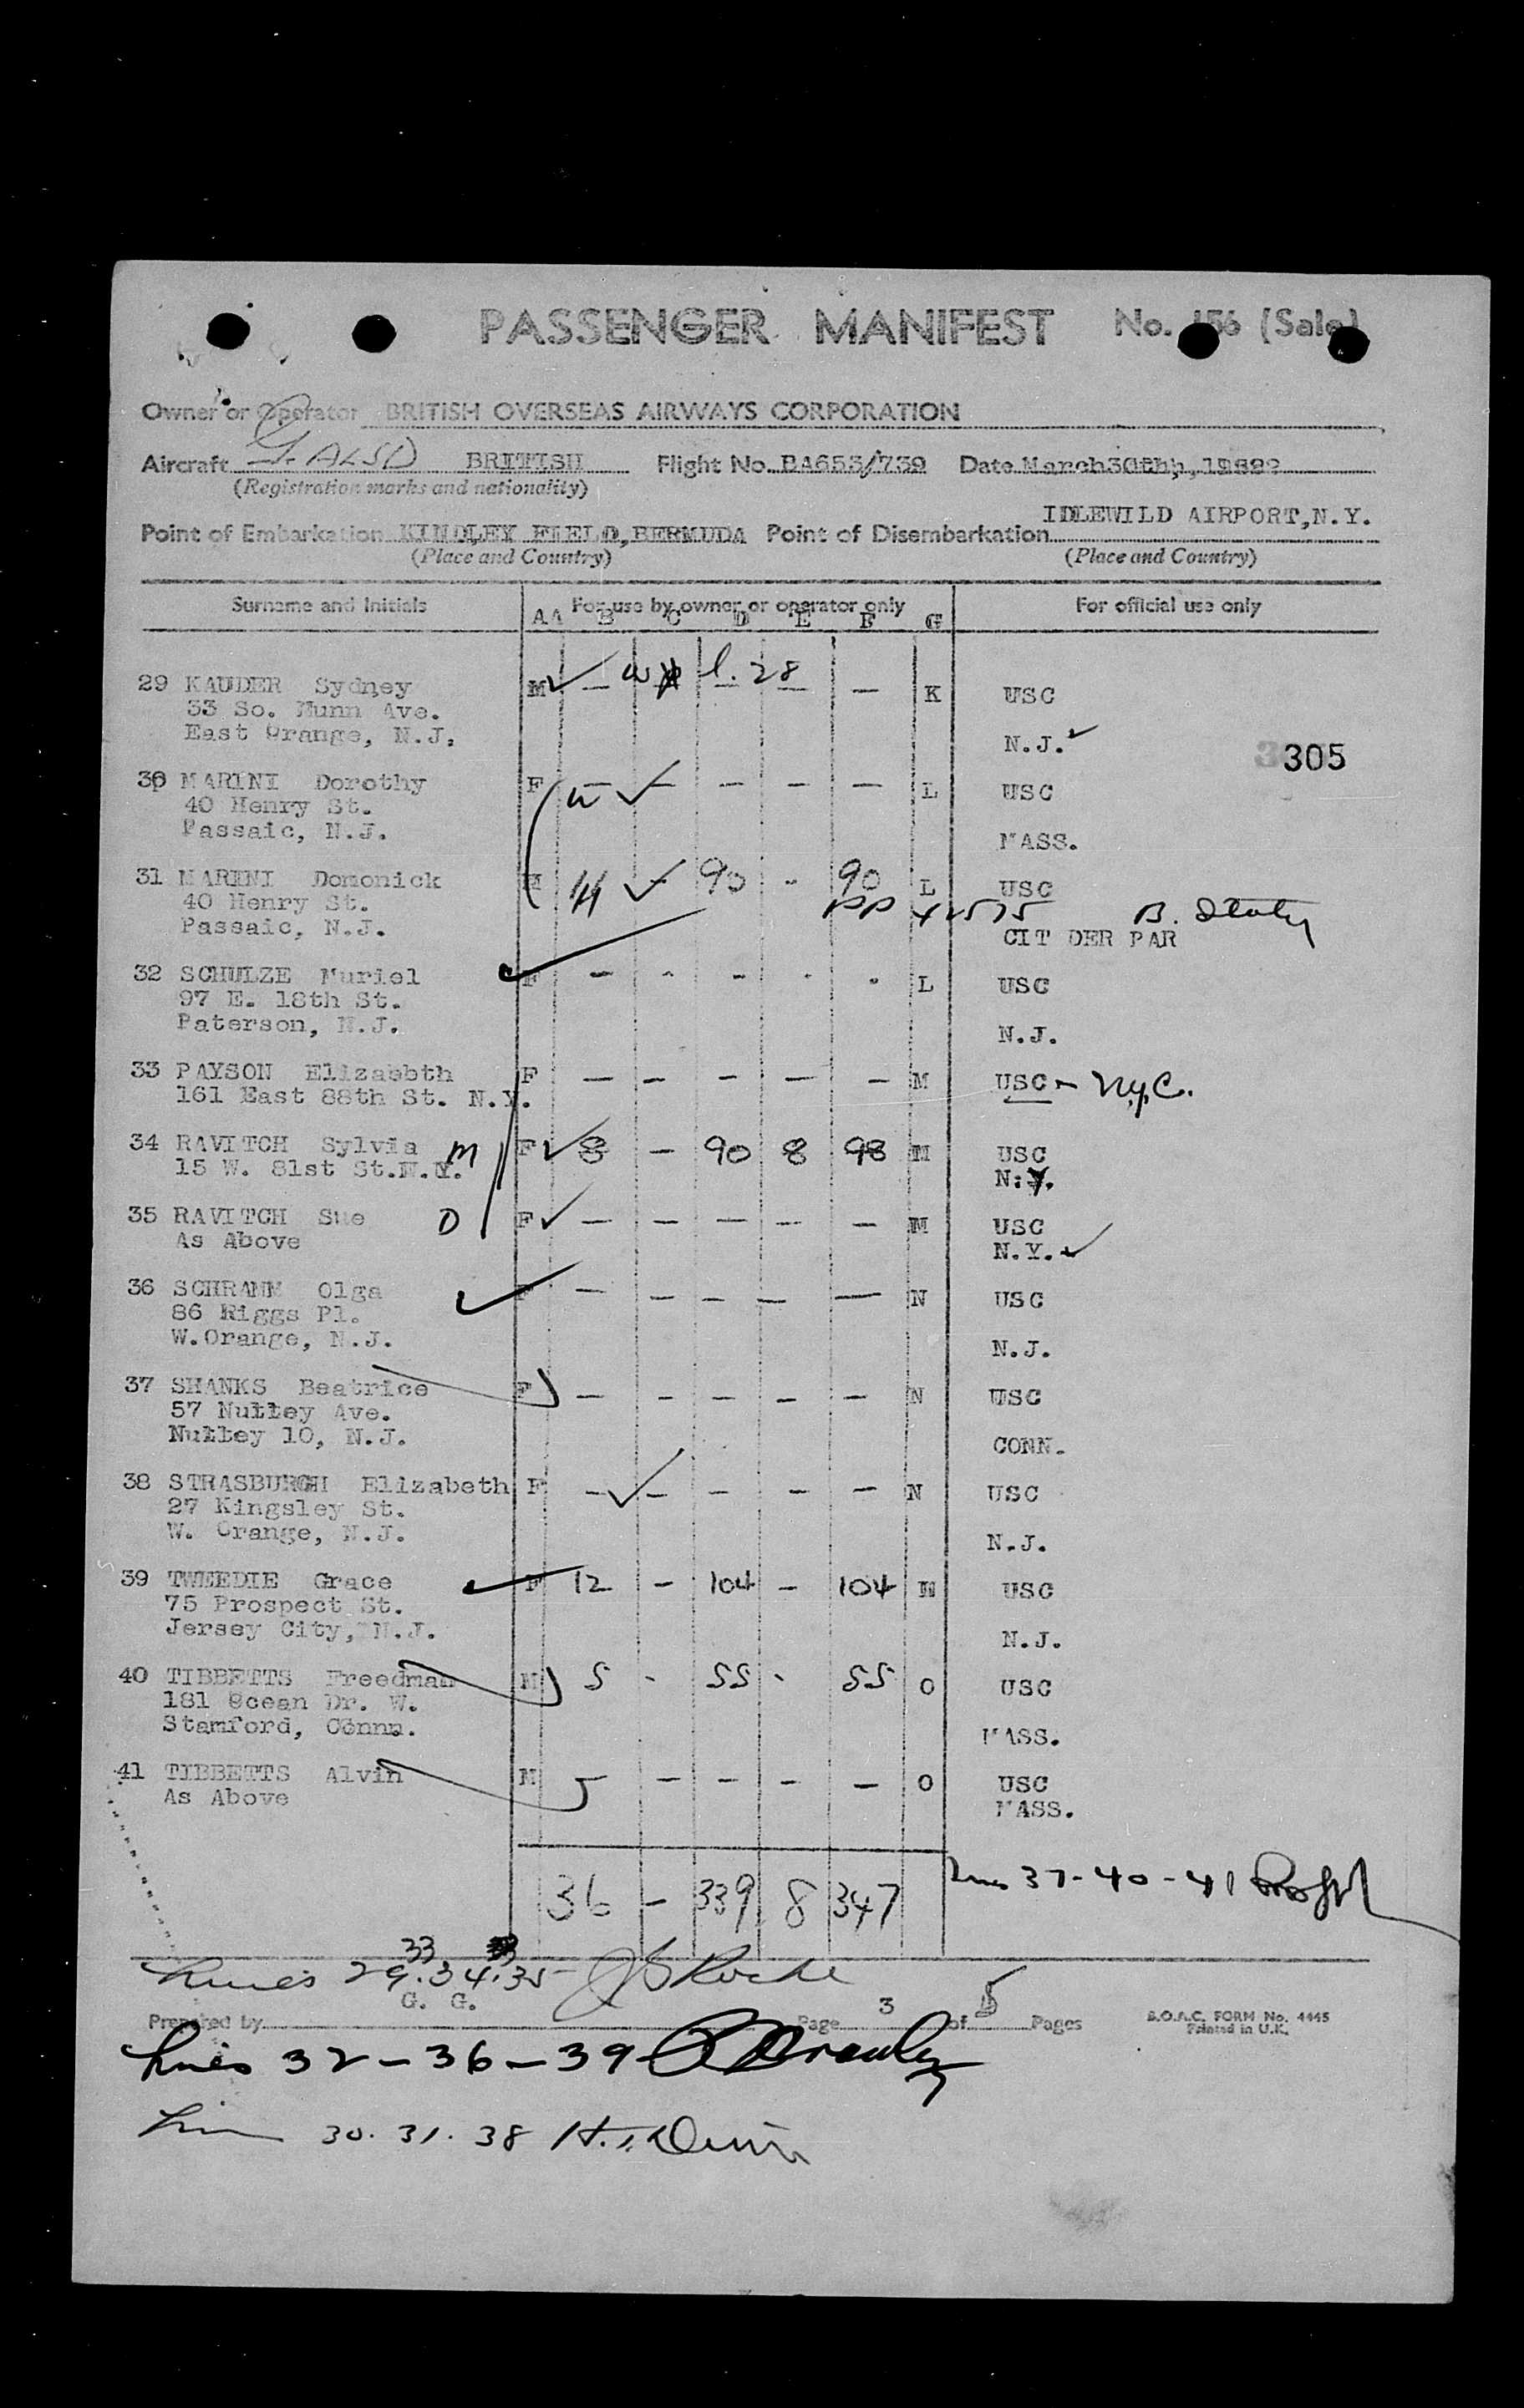 PASSENGER MANIFEST No. 156 (Sale)
Owner or Operator BRITISH OVERSEAS AIRWAYS CORPORATION
Aircraft G-ALSD BRITISH Flight No. BA653/739 Date
(Registration marks and nationality)
IDLEWILD AIRPORT,N.Y.
Point of Embarkation KINDLEY FIELD, BERMUDA Point of Disembarkation
(Place and Country) (Place and Country)
Surname and Initials For use by owner or operator only For official use only
AA B C D E F G
29 KAUDER Sydney M ✓ — l. 28 — — K USC
33 So. Munn Ave.
East Orange, N.J. N.J. ✓
305
30 MARINI Dorothy F W ✓ — — — L USC
40 Henry St.
Passaic, N.J. MASS.
31 MARINI Domonick M H ✓ - 90 - 90 L USC
40 Henry St. PP
Passaic, N.J. CIT DER PAR
32 SCHULZE Muriel ✓ F — - - - - L USC
97 E. 18th St.
Paterson, N.J. N.J.
33 PAYSON Elizabbth F — — — — — M USC - N.Y.C.
161 East 88th St. N.Y.
34 RAVITCH Sylvia M F ✓ 8 — 90 8 98 M USC
15 W. 81st St.N.Y. N.Y.
35 RAVITCH Sue D F ✓ — — — — — M USC
As Above N.Y. ✓
36 SCHRAMM Olga ✓ F — — — — — N USC
86 Riggs Pl.
W.Orange, N.J. N.J.
37 SHANKS Beatrice F — — — — — N USC
57 Nutley Ave.
Nutley 10, N.J. CONN.
38 STRASBURGH Elizabeth F — ✓ — — — — N USC
27 Kingsley St.
W. Orange, N.J. N.J.
39 TWEEDIE Grace ✓ F 12 — 104 — 104 N USC
75 Prospect St.
Jersey City, N.J. N.J.
40 TIBBETTS Freedman M 5 - 55 - 55 O USC
181 Ocean Dr. W.
Stamford, Conn. MASS.
41 TIBBETTS Alvin M — — — — — O USC
As Above MASS.
36 — 339 8 347
Lines 37-40-41
33
Lines 29.34.35 Roche
G. G.
Prepared by Page 3 of 5 Pages B.O.A.C. FORM No. 4445
Printed in U.K.
Lines 32-36-39
30. 31. 38